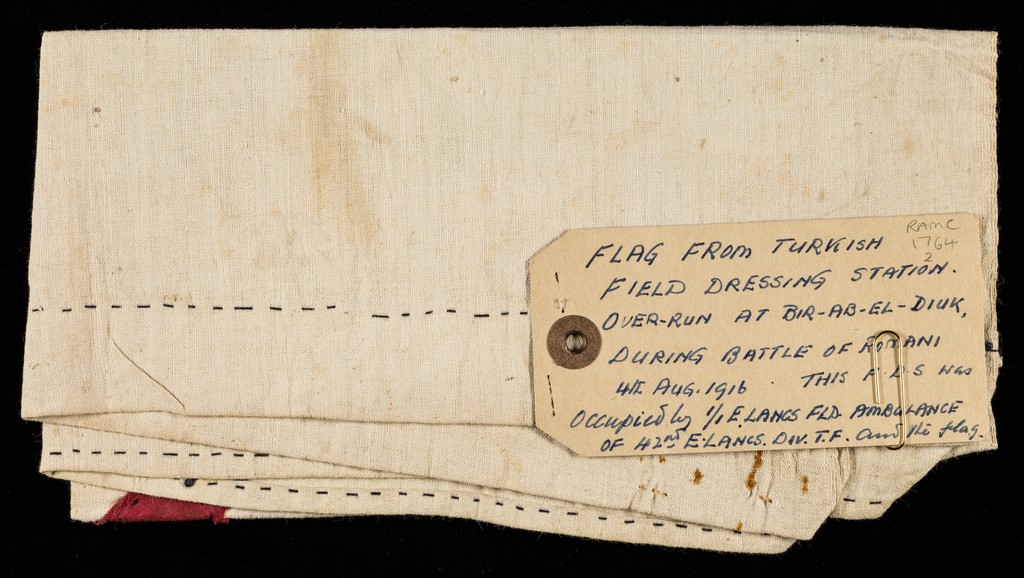 RAMC
1764
2
FLAG FROM TURKISH
FIELD DRESSING STATION.
OVER-RUN AT BIR-AB-EL-DIUK,
DURING BATTLE OF ROMANI
4TH AUG. 1916 THIS F.D.S was
Occupied by 1/1 E. LANCS FLD AMBULANCE
OF 42ND E. LANCS. DIV. T.F. and the flag.